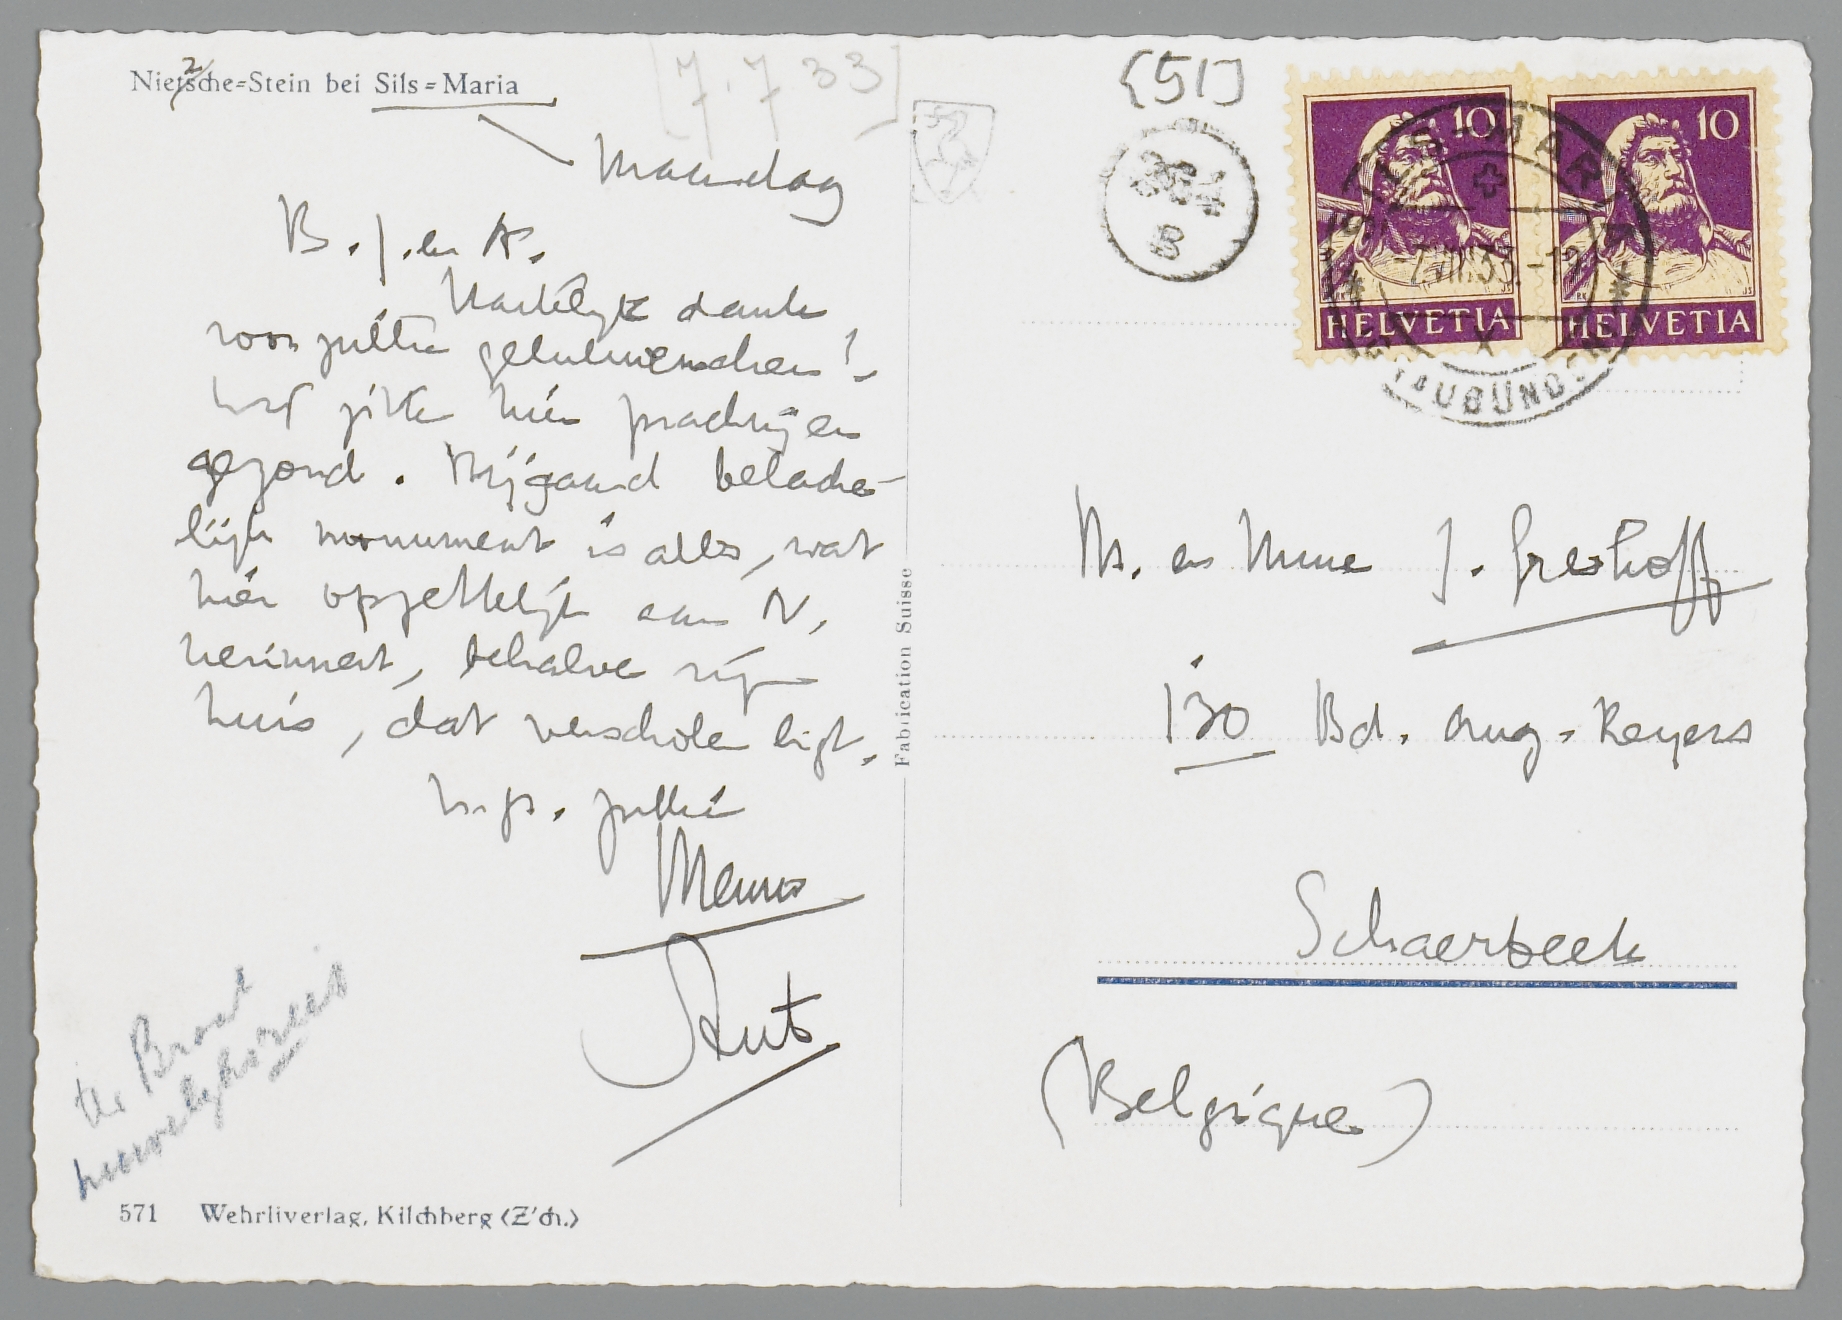 Nietzsche=Stein bei Sils=Maria
[7.7 33]
[51]
Maandag
B. J. en A.
Hartelijk dank
voor jullie gelukwenschen!
Wij zitten hier prachtig en
gezond. Bijgaand belache-
lijk monument is alles, wat
hier opzettelijk aan N.
herinnert, behalve zijn
huis, dat verscholen ligt.
h.gr. jullie
Menno
Ant
ter Braak
huwelijksreis
571 Wehrliverlag, Kilchberg (Z'ch.)
Fabrication Suisse
10 HELVETIA
10 HELVETIA
SILS-MARIA
-7.VIII.33.-19
B
M. en Mme J. Greshoff
130 Bd. Aug. Reyers
Schaerbeek
(Belgique)